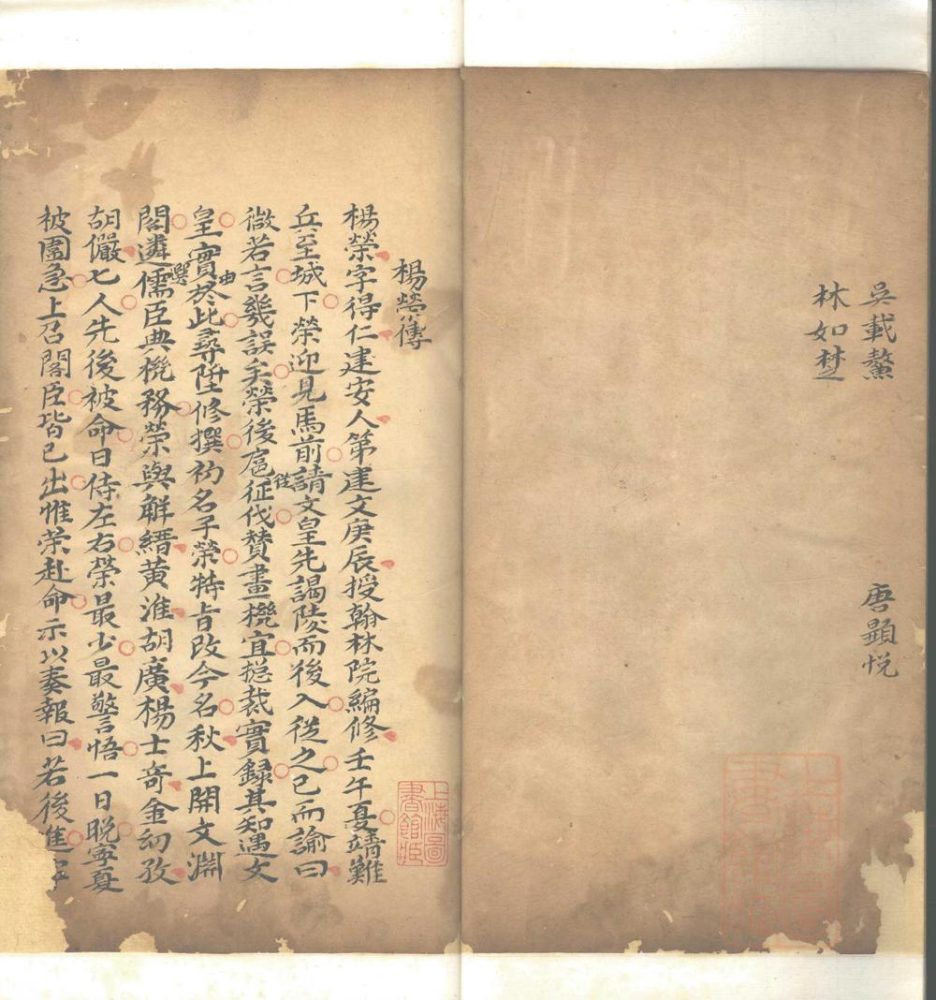 吳載鰲　唐顯悅
林如楚
楊榮傳
楊榮字得仁建安人第建文庚辰授翰林院編修壬午夏靖難
兵至城下榮迎見馬前請文皇先謁陵而後入從之已而諭曰
微若言幾誤矣榮後扈從征伐贊畫機宜揔裁實錄其知遇文
皇實由於此尋陞修撰初名子榮特旨改今名秋上開文淵
閣遴儒臣典機務榮與解縉黃淮胡廣楊士奇金幼孜
胡儼七人先後被命日侍左右榮最少最警悟一日晚寧夏
被圍急上召閣臣皆已出惟榮赴命示以奏報曰若後進
上海圖
書館藏